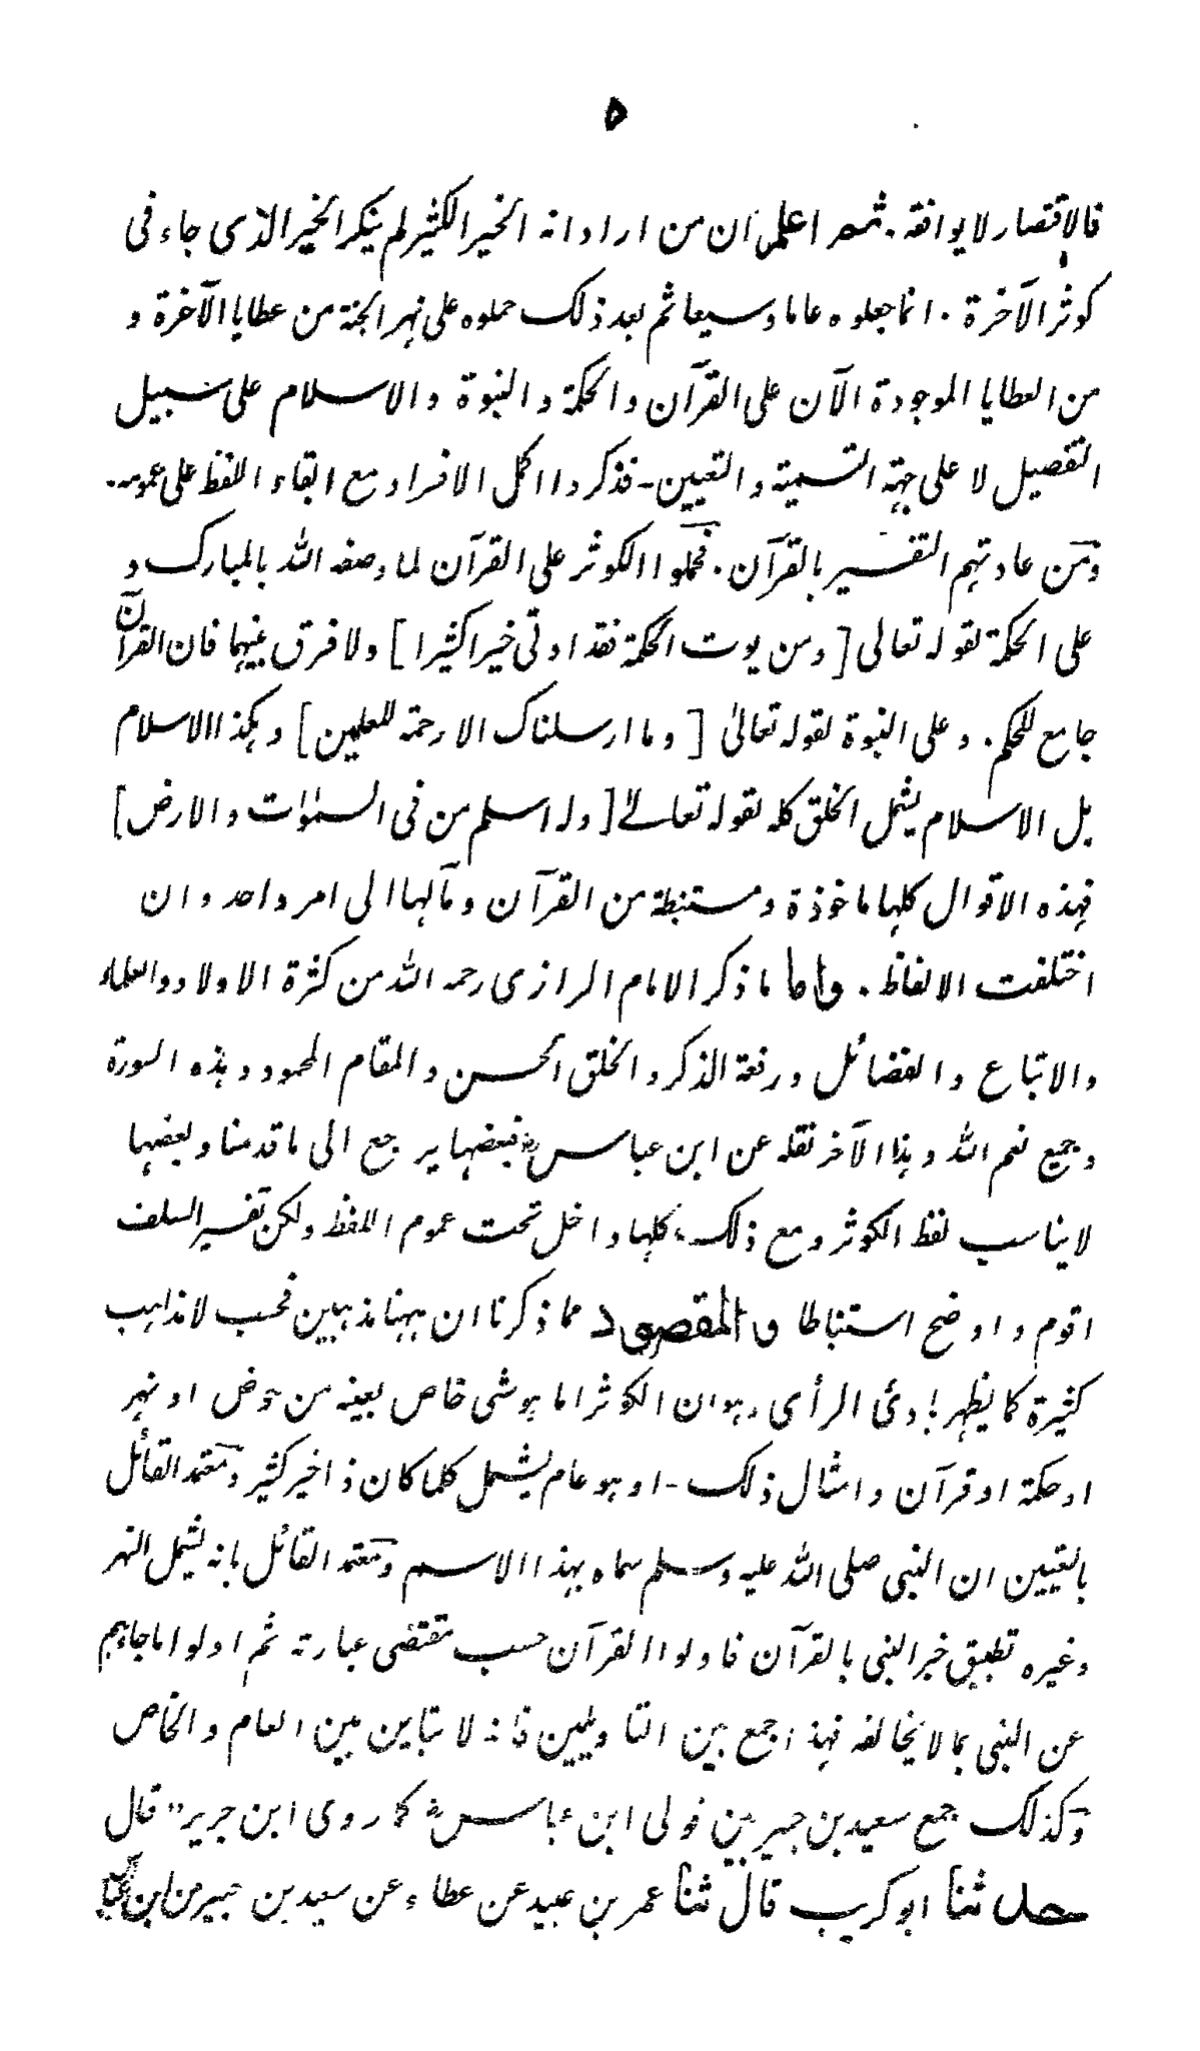 ٥
فالاقتصار لا يوافقه. ثم اعلم ان من اراد انه الخير الكثير لم ينكر الخير الذى جاء فى
كوثر الآخرة. انما جعلوه عاما وسيعا ثم بعد ذلك حملوه على نهر الجنة من عطايا الآخرة و
من العطايا الموجودة الآن على القرآن والحكمة والنبوة والاسلام على سبيل
التفصيل لا على جهة التسمية والتعيين۔ فذكروا اكمل الافراد مع ابقاء اللفظ على عمومه.
ومن عادتهم التفسير بالقرآن. فحملوا الكوثر على القرآن لما وصفه الله بالمبارك و
على الحكمة لقوله تعالى [ومن يوت الحكمة فقد اوتى خيرا كثيرا] ولا فرق بينهما فان القرآن
جامع للحكم. وعلى النبوة لقوله تعالىٰ [وما ارسلناك الا رحمة للعلمين] وهكذا الاسلام
بل الاسلام يشمل الخلق كله لقوله تعالىٰ [وله اسلم من فى السمٰوٰت والارض]
فهذه الاقوال كلها ماخوذة ومستنبطة من القرآن ومآلها الى امر واحد وان
اختلفت الالفاظ. واما ما ذكر الامام الرازى رحمه الله من كثرة الاولاد والعلماء
والاتباع والفضائل ورفعة الذكر والخلق الحسن والمقام المحمود وهذه السورة
وجميع نعم الله وهذا الآخر نقله عن ابن عباسؓ فبعضها يرجع الى ما قدمنا وبعضها
لا يناسب لفظ الكوثر ومع ذلك، كلها داخل تحت عموم اللفظ ولكن تفسير السلف
اقوم واوضح استنباطا والمقصود مما ذكرنا ان ههنا مذهبين فحسب لا مذاهب
كثيرة كما يظهر بادئ الرأى وهو ان الكوثر اما هو شى خاص بعينه من حوض او نهر
او حكمة او قرآن وامثال ذلك۔ او هو عام يشمل كلما كان ذا خير كثير ومعتمد القائل
بالتعيين ان النبى صلى الله عليه وسلم سماه بهذا الاسم ومعتمد القائل بانه يشمل النهر
وغيره تطبيق خبر النبى بالقرآن فاولوا القرآن حسب مقتضى عبارته ثم اولوا ما جاءهم
عن النبى بما لا يخالفه فهذا جمع بين التاويلين فانه لا تباين بين العام والخاص
وكذلك جمع سعيد بن جبير بين قولى ابن عباسؓ كما روى ابن جرير "قال
حدثنا ابو كريب قال ثنا عمر بن عبيد عن عطاء عن سعيد بن جبير عن ابن عباس